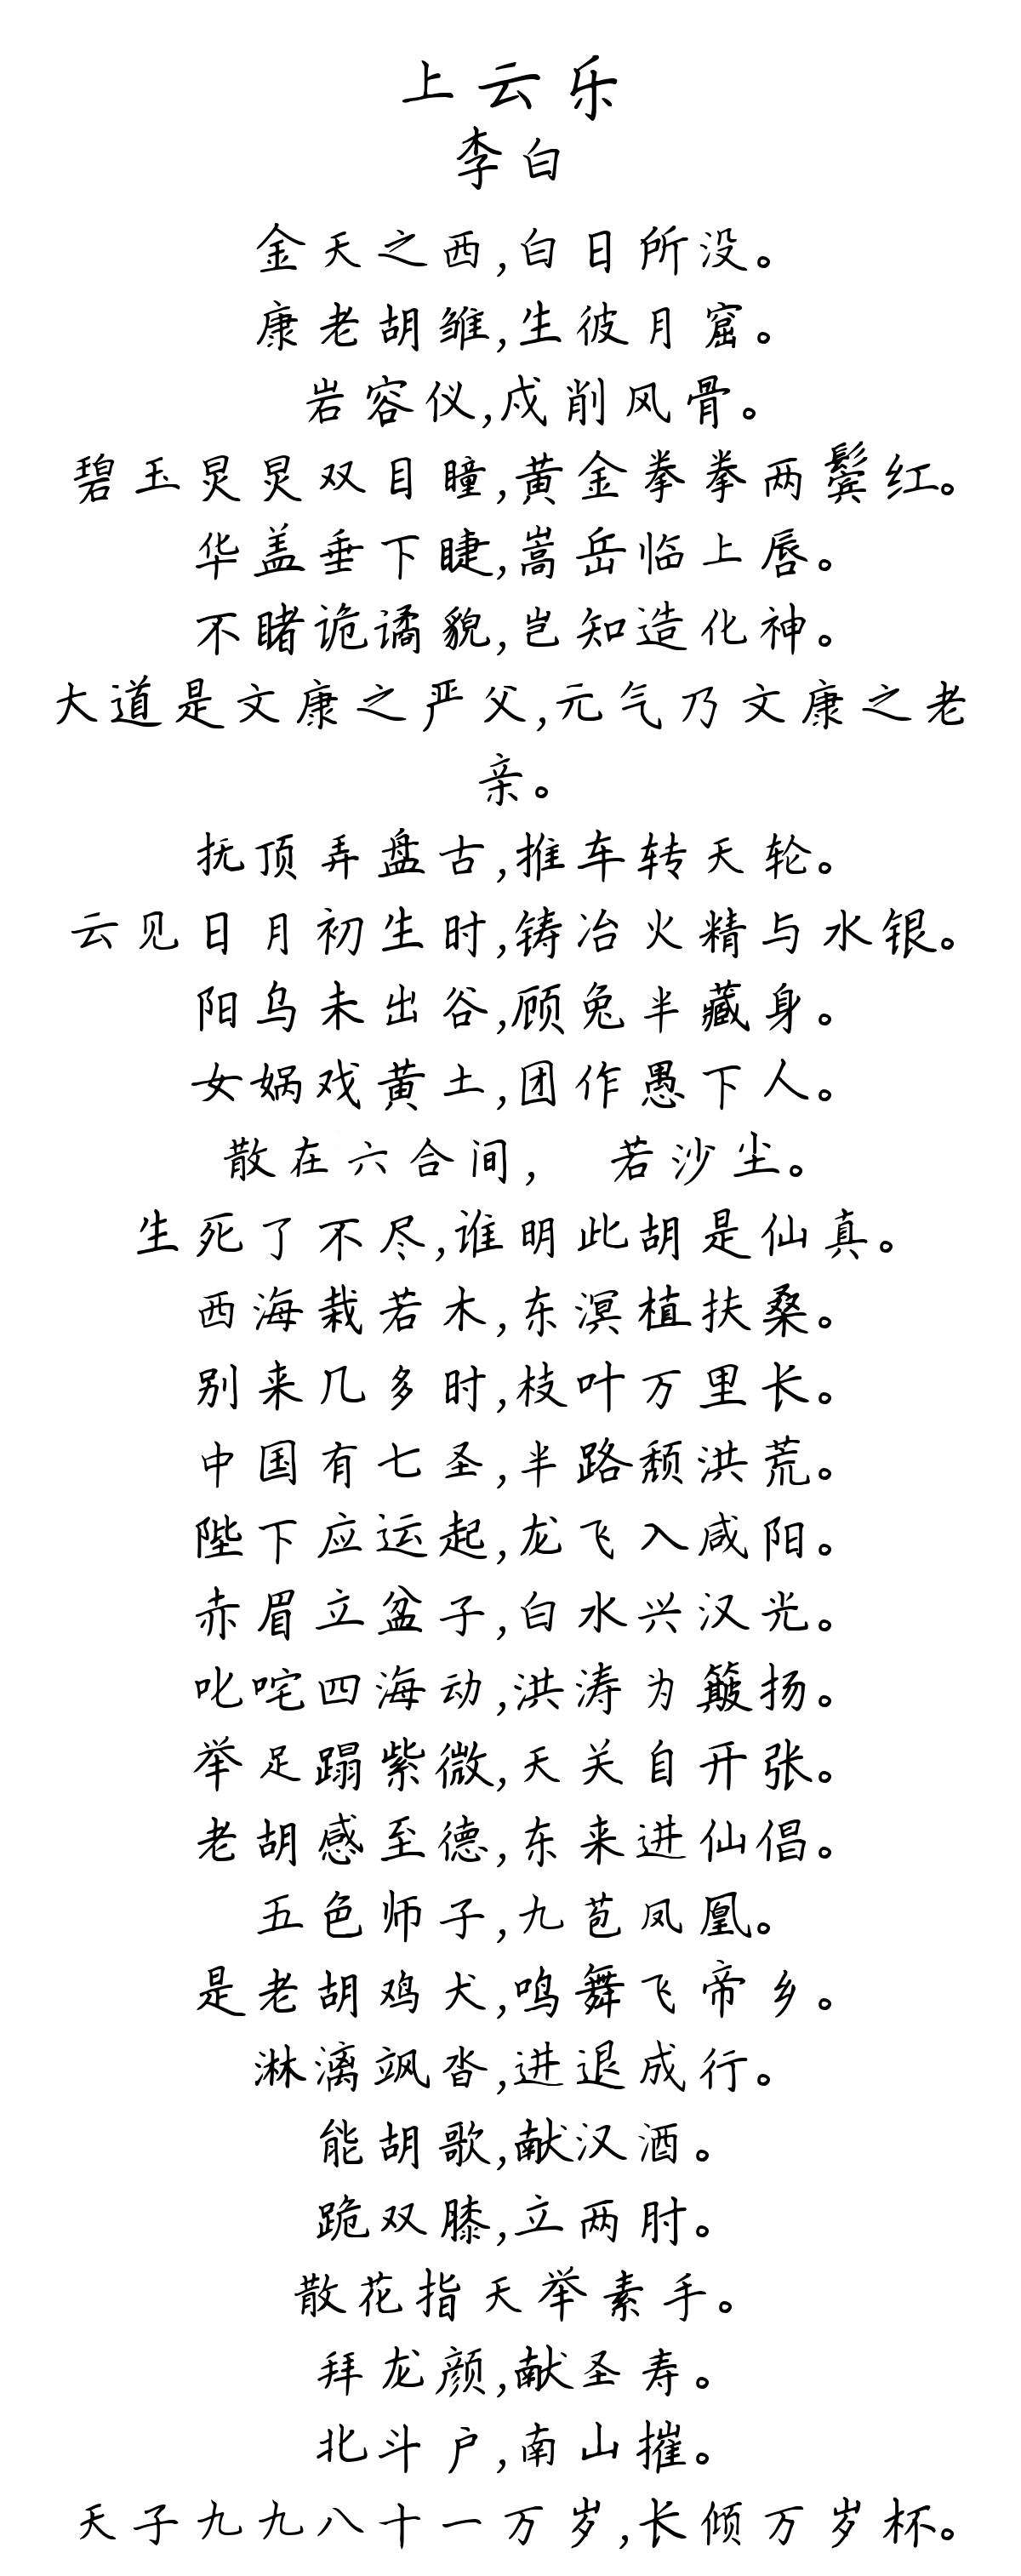 上云乐
李白
金天之西,白日所没。
康老胡雏,生彼月窟。
岩容仪,戍削风骨。
碧玉炅炅双目瞳,黄金拳拳两鬓红。
华盖垂下睫,嵩岳临上唇。
不睹诡谲貌,岂知造化神。
大道是文康之严父,元气乃文康之老
亲。
抚顶弄盘古,推车转天轮。
云见日月初生时,铸冶火精与水银。
阳乌未出谷,顾兔半藏身。
女娲戏黄土,团作愚下人。
散在六合间, 若沙尘。
生死了不尽,谁明此胡是仙真。
西海栽若木,东溟植扶桑。
别来几多时,枝叶万里长。
中国有七圣,半路颓洪荒。
陛下应运起,龙飞入咸阳。
赤眉立盆子,白水兴汉光。
叱咤四海动,洪涛为簸扬。
举足蹋紫微,天关自开张。
老胡感至德,东来进仙倡。
五色师子,九苞凤凰。
是老胡鸡犬,鸣舞飞帝乡。
淋漓飒沓,进退成行。
能胡歌,献汉酒。
跪双膝,立两肘。
散花指天举素手。
拜龙颜,献圣寿。
北斗户,南山摧。
天子九九八十一万岁,长倾万岁杯。